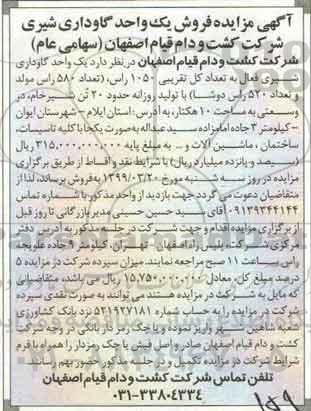 آگهی مزایده فروش یک واحد گاوداری شیری
شرکت کشت و دام قیام اصفهان (سهامی عام)
شرکت کشت و دام قیام اصفهان در نظر دارد یک واحد گاوداری
شیری فعال به تعداد کل تقریبی ۱۰۵۰ راس، (تعداد ۵۸۰ راس مولد
و تعداد ۵۲۰ راس دوشا) با تولید روزانه حدود ۲۰ تُن شیر خام، در
وسعتی به مساحت ۱۰ هکتار، به آدرس: استان ایلام - شهرستان ایوان
- کیلومتر ۳ جاده امامزاده سید عبداله به صورت یکجا با کلیه تاسیسات،
ساختمان، ماشین آلات و... به مبلغ پایه ۳۱۵,۰۰۰,۰۰۰,۰۰۰ ریال
(سیصد و پانزده میلیارد ریال) با شرایط نقد و اقساط از طریق برگزاری
مزایده در روز سه شنبه مورخ ۱۳۹۹/۰۳/۲۰ به فروش برساند، لذا از
متقاضیان دعوت می گردد جهت بازدید از واحد مذکور با شماره تماس
۰۹۱۳۹۳۴۴۱۴۴ آقای سید حسین حسینی مدیر بازرگانی تا روز قبل
از برگزاری مزایده اقدام و جهت شرکت در جلسه مذکور به آدرس دفتر
مرکزی شرکت، پلیس راه اصفهان - تهران، کیلومتر ۹ جاده علویجه
راس ساعت ۱۱ صبح مراجعه نمایند. میزان سپرده شرکت در مزایده ۵
درصد مبلغ کل، معادل ۱۵,۷۵۰,۰۰۰,۰۰۰ ریال می باشد، متقاضیانی
که مایل به شرکت در مزایده هستند می توانند به صورت نقدی سپرده
شرکت در مزایده را به حساب شماره ۵۲۱۹۲۷۱۸۱ نزد بانک کشاورزی
شعبه شاهین شهر واریز نموده و یا چک رمز دار بانکی در وجه شرکت
کشت و دام قیام اصفهان صادر و اصل فیش یا چک رمزدار را همراه با فرم
شرایط شرکت در مزایده تکمیل و در جلسه مذکور حضور بهم رسانند.
تلفن تماس شرکت کشت و دام قیام اصفهان
۰۳۱-۳۳۸۰۴۳۳۴